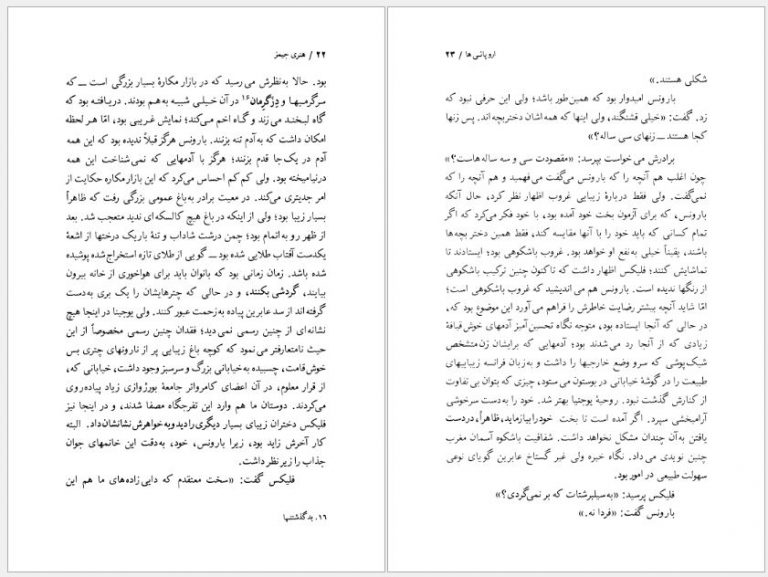 ۲۲ / هنری جیمز
بود. حالا به‌نظرش می رسید که در بازار مکارهٔ بسیار بزرگی است ــ که
سرگرمیها و دژگرمان۱۶ در آن خیلی شبیه به‌هم بودند. دریافته بود که
گاه لبخند می زند و گاه اخم می‌کند؛ نمایش غریبی بود، امّا هر لحظه
امکان داشت که به‌آدم تنه بزنند. بارونس هرگز قبلاً ندیده بود که این همه
آدم در یک‌جا قدم بزنند؛ هرگز با آدمهایی که نمی‌شناخت این همه
درنیامیخته بود. ولی کم کم احساس می‌کرد که این بازار مکاره حکایت از
امر جدیتری می‌کند. در معیت برادر به‌باغ عمومی بزرگی رفت که ظاهراً
بسیار زیبا بود؛ ولی از اینکه در باغ هیچ کالسکه‌ای ندید متعجب شد. بعد
از ظهر رو به‌اتمام بود؛ چمن درشت شاداب و تنهٔ باریک درختها از اشعهٔ
یکدست آفتاب طلایی شده بود ــ گویی از طلای تازه استخراج شده پوشیده
شده باشد. زمان زمانی بود که بانوان باید برای هواخوری از خانه بیرون
بیایند، گردشی بکنند، و در حالی که چترهایشان را یک بری به‌دست
گرفته‌اند از سد عابرین پیاده به‌زحمت عبور کنند. ولی یوجینا در اینجا هیچ
نشانه‌ای از چنین رسمی نمی دید؛ فقدان چنین رسمی مخصوصاً از این
حیث نامتعارفتر می‌نمود که کوچه باغ زیبایی پر از نارونهای چتری بس
خوش‌قامت، چسبیده به‌خیابانی بزرگ و سرسبز وجود داشت، خیابانی که،
از قرار معلوم، در آن اعضای کامرواتر جامعهٔ بورژوازی زیاد پیاده‌روی
می‌کردند. دوستان ما هم وارد این تفرجگاه مصفا شدند، و در اینجا نیز
فلیکس دختران زیبای بسیار دیگری را دید و به‌خواهرش نشانشان داد. البته
کار آخرش زاید بود، زیرا بارونس، خود، به‌دقت این خانمهای جوان
جذاب را زیر نظر داشت.
فلیکس گفت: «سخت معتقدم که دایی‌زاده‌های ما هم این
۱۶. بدگذشتنها
اروپائی ها / ۲۳
شکلی هستند.»
بارونس امیدوار بود که همین‌طور باشد؛ ولی این حرفی نبود که
زد. گفت: «خیلی قشنگند، ولی اینها که همه‌اشان دختربچه‌اند. پس زنها
کجا هستند ــ زنهای سی ساله؟»
برادرش می خواست بپرسد: «مقصودت سی و سه ساله‌هاست؟»
چون اغلب هم آنچه را که بارونس می‌گفت می‌فهمید و هم آنچه را که
نمی‌گفت. ولی فقط دربارهٔ زیبایی غروب اظهار نظر کرد، حال آنکه
بارونس، که برای آزمون بخت خود آمده بود، با خود فکر می‌کرد که اگر
تمام کسانی که باید خود را با آنها مقایسه کند، فقط همین دختر بچه‌ها
باشند، یقیناً خیلی به‌نفع او خواهد بود. غروب باشکوهی بود؛ ایستادند تا
تماشایش کنند؛ فلیکس اظهار داشت که تاکنون چنین ترکیب باشکوهی
از رنگها ندیده است. بارونس هم می اندیشید که غروب باشکوهی است؛
امّا شاید آنچه بیشتر رضایت خاطرش را فراهم می آورد این موضوع بود که،
در حالی که آنجا ایستاده بود، متوجه نگاه تحسین‌آمیز آدمهای خوش‌قیافهٔ
زیادی که از آنجا رد می‌شدند بود؛ آدمهایی که برایشان زن متشخص
شیک‌پوشی که سر و وضع خارجیها را داشت و به‌زبان فرانسه زیباییهای
طبیعت را در گوشهٔ خیابانی در بوستون می ستود، چیزی که بتوان بی تفاوت
از کنارش گذشت نبود. روحیهٔ یوجنیا بهتر شد. خود را به‌دست سرخوشی
آرامبخشی سپرد. اگر آمده است تا بخت خود را بیازماید، ظاهراً، در دست
یافتن به‌آن چندان مشکل نخواهد داشت. شفافیت باشکوه آسمان مغرب
چنین نویدی می‌داد. نگاه خیره ولی غیر گستاخ عابرین گویای نوعی
سهولت طبیعی در امور بود.
فلیکس پرسید: «به‌سیلبرشتات که بر نمی‌گردی؟»
بارونس گفت: «فردا نه.»